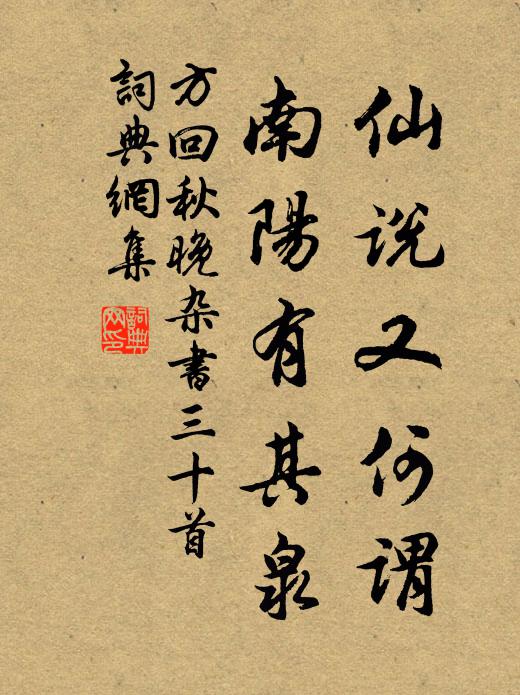 仙说又何谓
南陽有其泉
方回秋晚杂書三十首
詞典網集
詞典网印